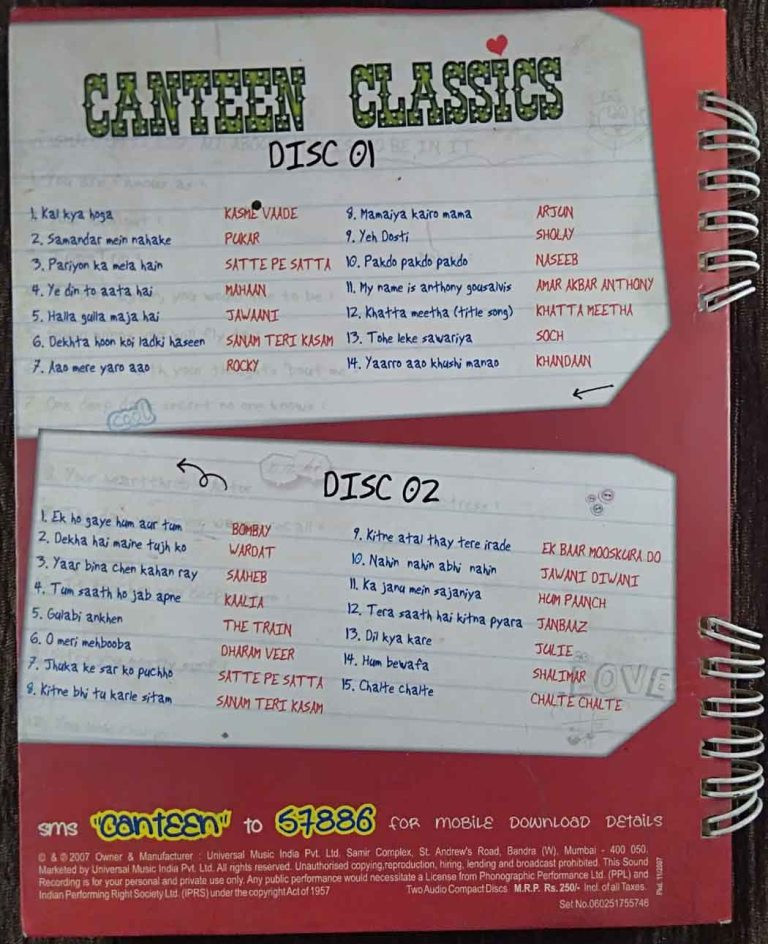 CANTEEN CLASSICS
DISC 01
1. Kal kya hoga KASME VAADE
2. Samandar mein nahake PUKAR
3. Pariyon ka mela hain SATTE PE SATTA
4. Ye din to aata hai MAHAAN
5. Halla gulla maja hai JAWAANI
6. Dekhta hoon koi ladki haseen SANAM TERI KASAM
7. Aao mere yaro aao ROCKY
8. Mamaiya kairo mama ARJUN
9. Yeh Dosti SHOLAY
10. Pakdo pakdo pakdo NASEEB
11. My name is anthony gousalvis AMAR AKBAR ANTHONY
12. Khatta meetha (title song) KHATTA MEETHA
13. Tohe leke sawariya SOCH
14. Yaarro aao khushi manao KHANDAAN
COOL
DISC 02
1. Ek ho gaye hum aur tum BOMBAY
2. Dekha hai maine tujh ko WARDAT
3. Yaar bina chen kahan ray SAAHEB
4. Tum saath ho jab apne KAALIA
5. Gulabi ankhen THE TRAIN
6. O meri mehbooba DHARAM VEER
7. Jhuka ke sar ko puchho SATTE PE SATTA
8. Kitne bhi tu karle sitam SANAM TERI KASAM
9. Kitne atal thay tere irade EK BAAR MOOSKURA DO
10. Nahin nahin abhi nahin JAWANI DIWANI
11. Ka janu mein sajaniya HUM PAANCH
12. Tera saath hai kitna pyara JANBAAZ
13. Dil kya kare JULIE
14. Hum bewafa SHALIMAR
15. Chalte chalte CHALTE CHALTE
LOVE
sms "canteen" to 57886 for mobile download details
© & ℗ 2007 Owner & Manufacturer : Universal Music India Pvt. Ltd. Samir Complex, St. Andrew's Road, Bandra (W), Mumbai - 400 050.
Marketed by Universal Music India Pvt. Ltd. All rights reserved. Unauthorised copying,reproduction, hiring, lending and broadcast prohibited. This Sound
Recording is for your personal and private use only. Any public performance would necessitate a License from Phonographic Performance Ltd. (PPL) and
Indian Performing Right Society Ltd. (IPRS) under the copyright Act of 1957 Two Audio Compact Discs M.R.P. Rs. 250/- Incl. of all Taxes.
Set No.060251755746